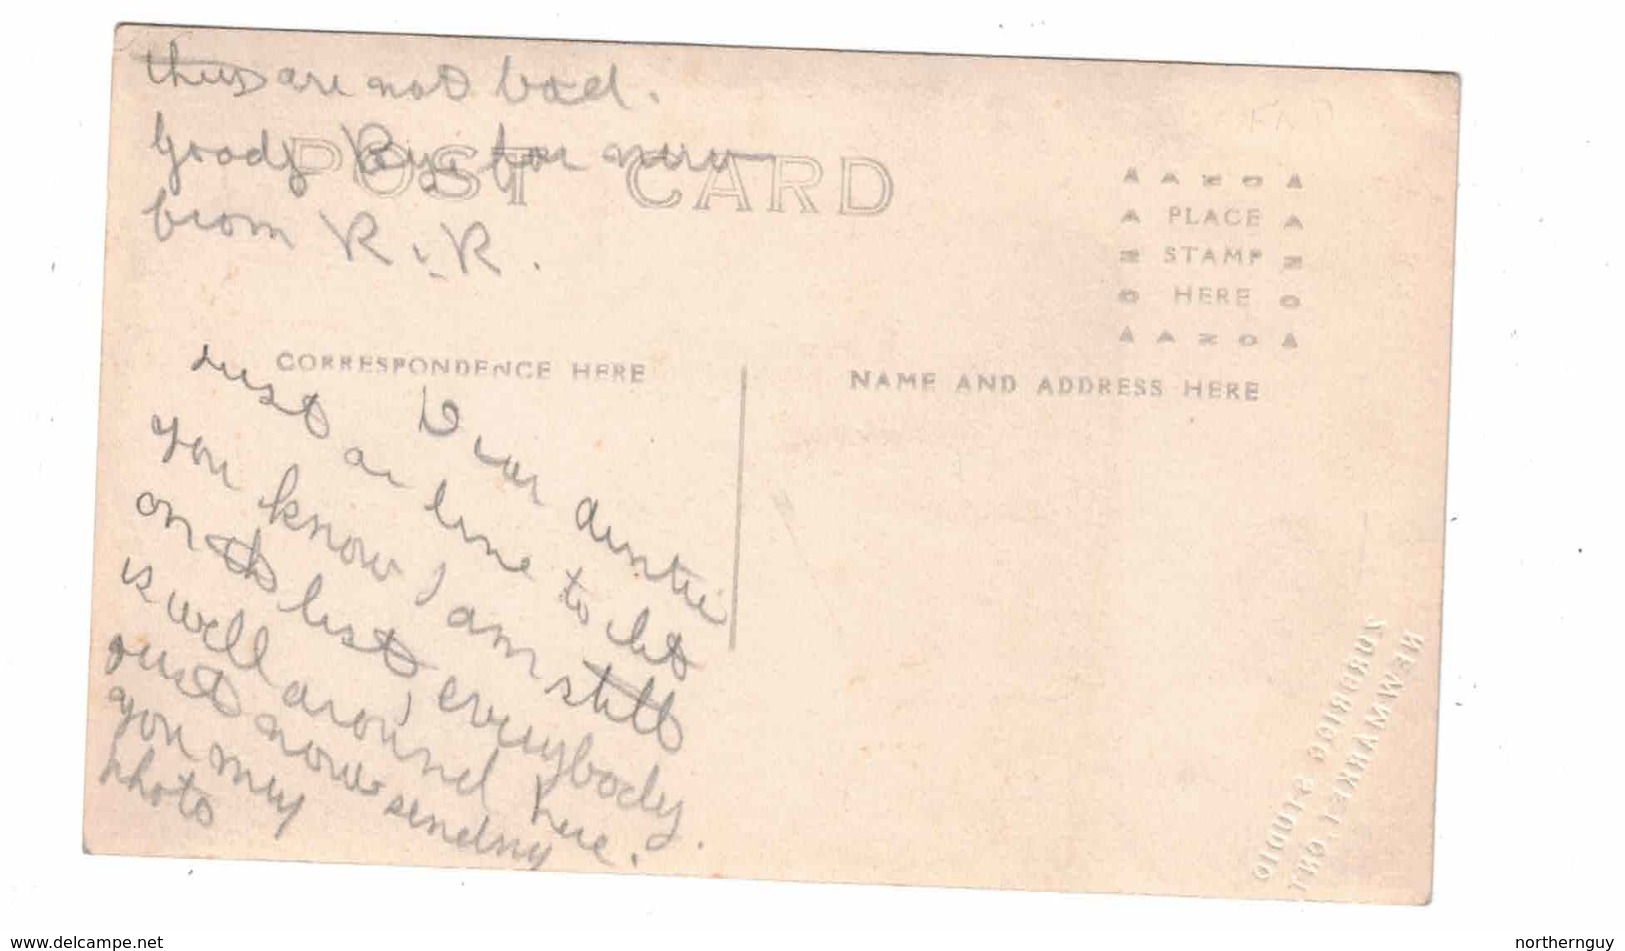 they are not bad.
Goody Bye for now
from R. R.
POST CARD
AZO
PLACE
STAMP
HERE
CORRESPONDENCE HERE
NAME AND ADDRESS HERE
Dear Auntie
Just a line to let
you know I am still
on the list everybody
is well around here.
Just now sending
you my
photo
ZURBRIGG STUDIO
NEWMARKET, ONT
www.delcampe.net
northernguy